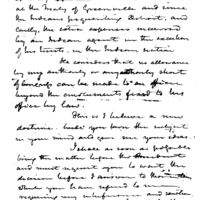 at the Treaty of Greenville and since
the Indians frequenting Detroit, and
lastly, the extra expenses incurred
by an Indian agent in the execution
of his trusts, in the Indian nation
He considers that no allowance
by any authority or any authority short
of Congress can be made to an officer
beyond the emoluments fixed to his
office by law.
This is I believe a new
doctrine. Will you turn the subject
in your mind and give me your ideas.
I shall as soon as possible
bring the matter before the
and must request you to wait the
issue before I answer to the
which you have referred to me
requiring my inference and